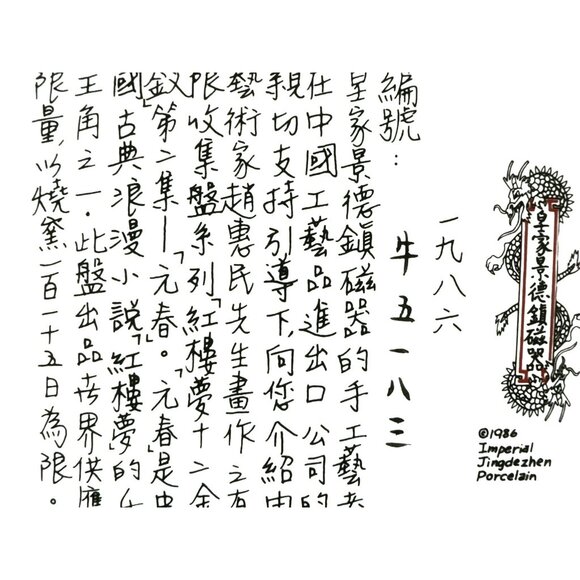 皇家景德鎮磁器
一九八六
編號：牛五一八三
皇家景德鎮磁器的手工藝者
在中國工藝品進出口公司的
親切支持引導下,向您介紹由
藝術家趙惠民先生畫作之有
限收集盤系列「紅樓夢十二金
釵」第二集—「元春」。「元春」是中
國古典浪漫小說「紅樓夢」的女
主角之一．此盤出品世界供應
限量,以燒窯一百一十五日為限。
©1986
Imperial
Jingdezhen
Porcelain